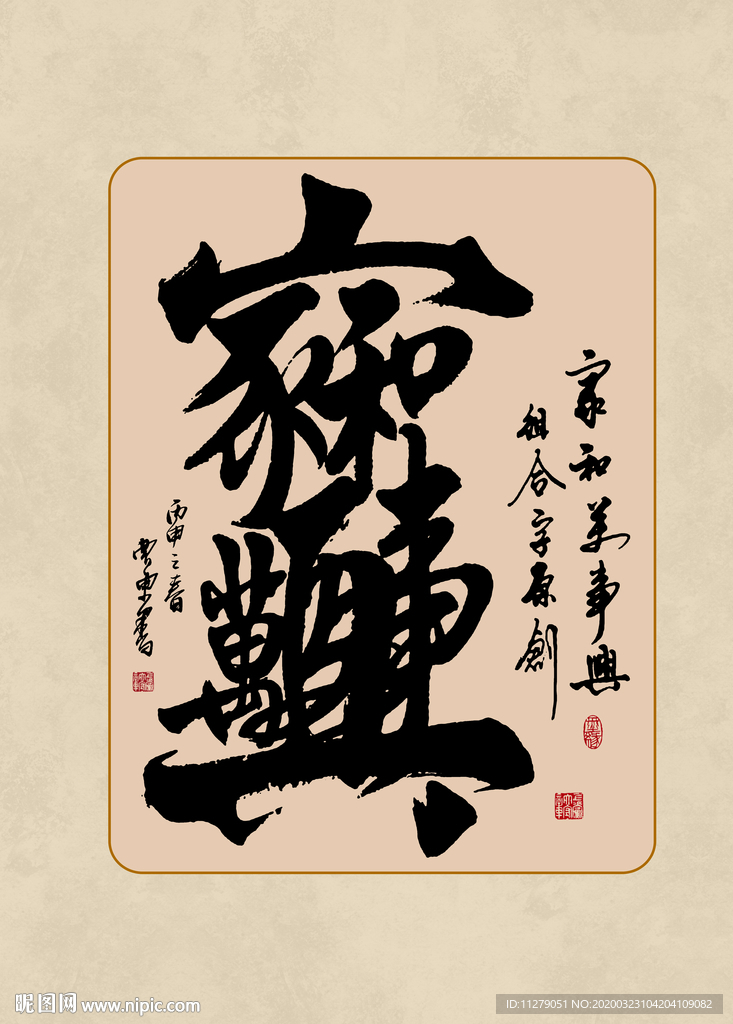 家和萬事興
家和万事興
组合字原創
丙申之春
昵图网 www.nipic.com
ID:11279051 NO:20200323104204109082